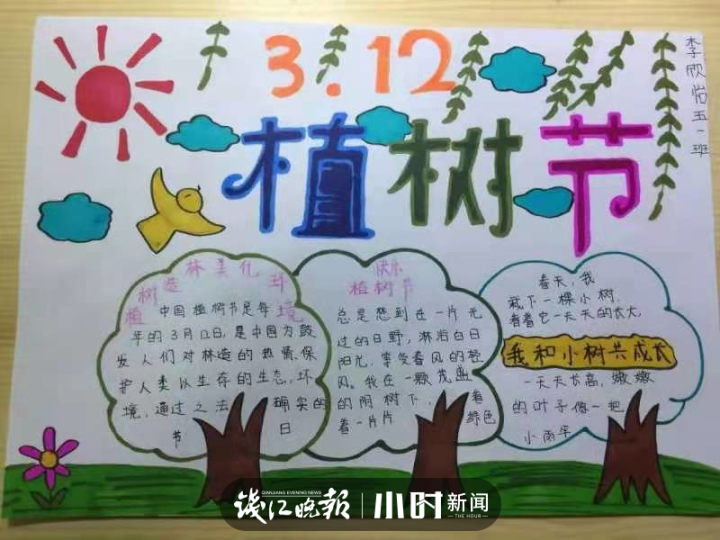 3.12
植树节
李欣怡五一班
植树造林美化环境
中国植树节是每
年的3月12日,是中国为鼓
发人们对林造的热情、保
护人类从生存的生态,环
境,通过之法 确实的
节 日
快乐
植树节
总是想到在一片无
过的日野,淋浴白日
阳光,享受春风的轻
风。我在一颗茂盛
的阴树下, 看
着一片片 绿色
春天,我
栽下一棵小树.
看着它一天天的长大
我和小树共成长
一天天长高,嫩嫩
的叶子像一把
小雨伞
钱江晚报
QIANJIANG EVENING NEWS
小时新闻
THE HOUR